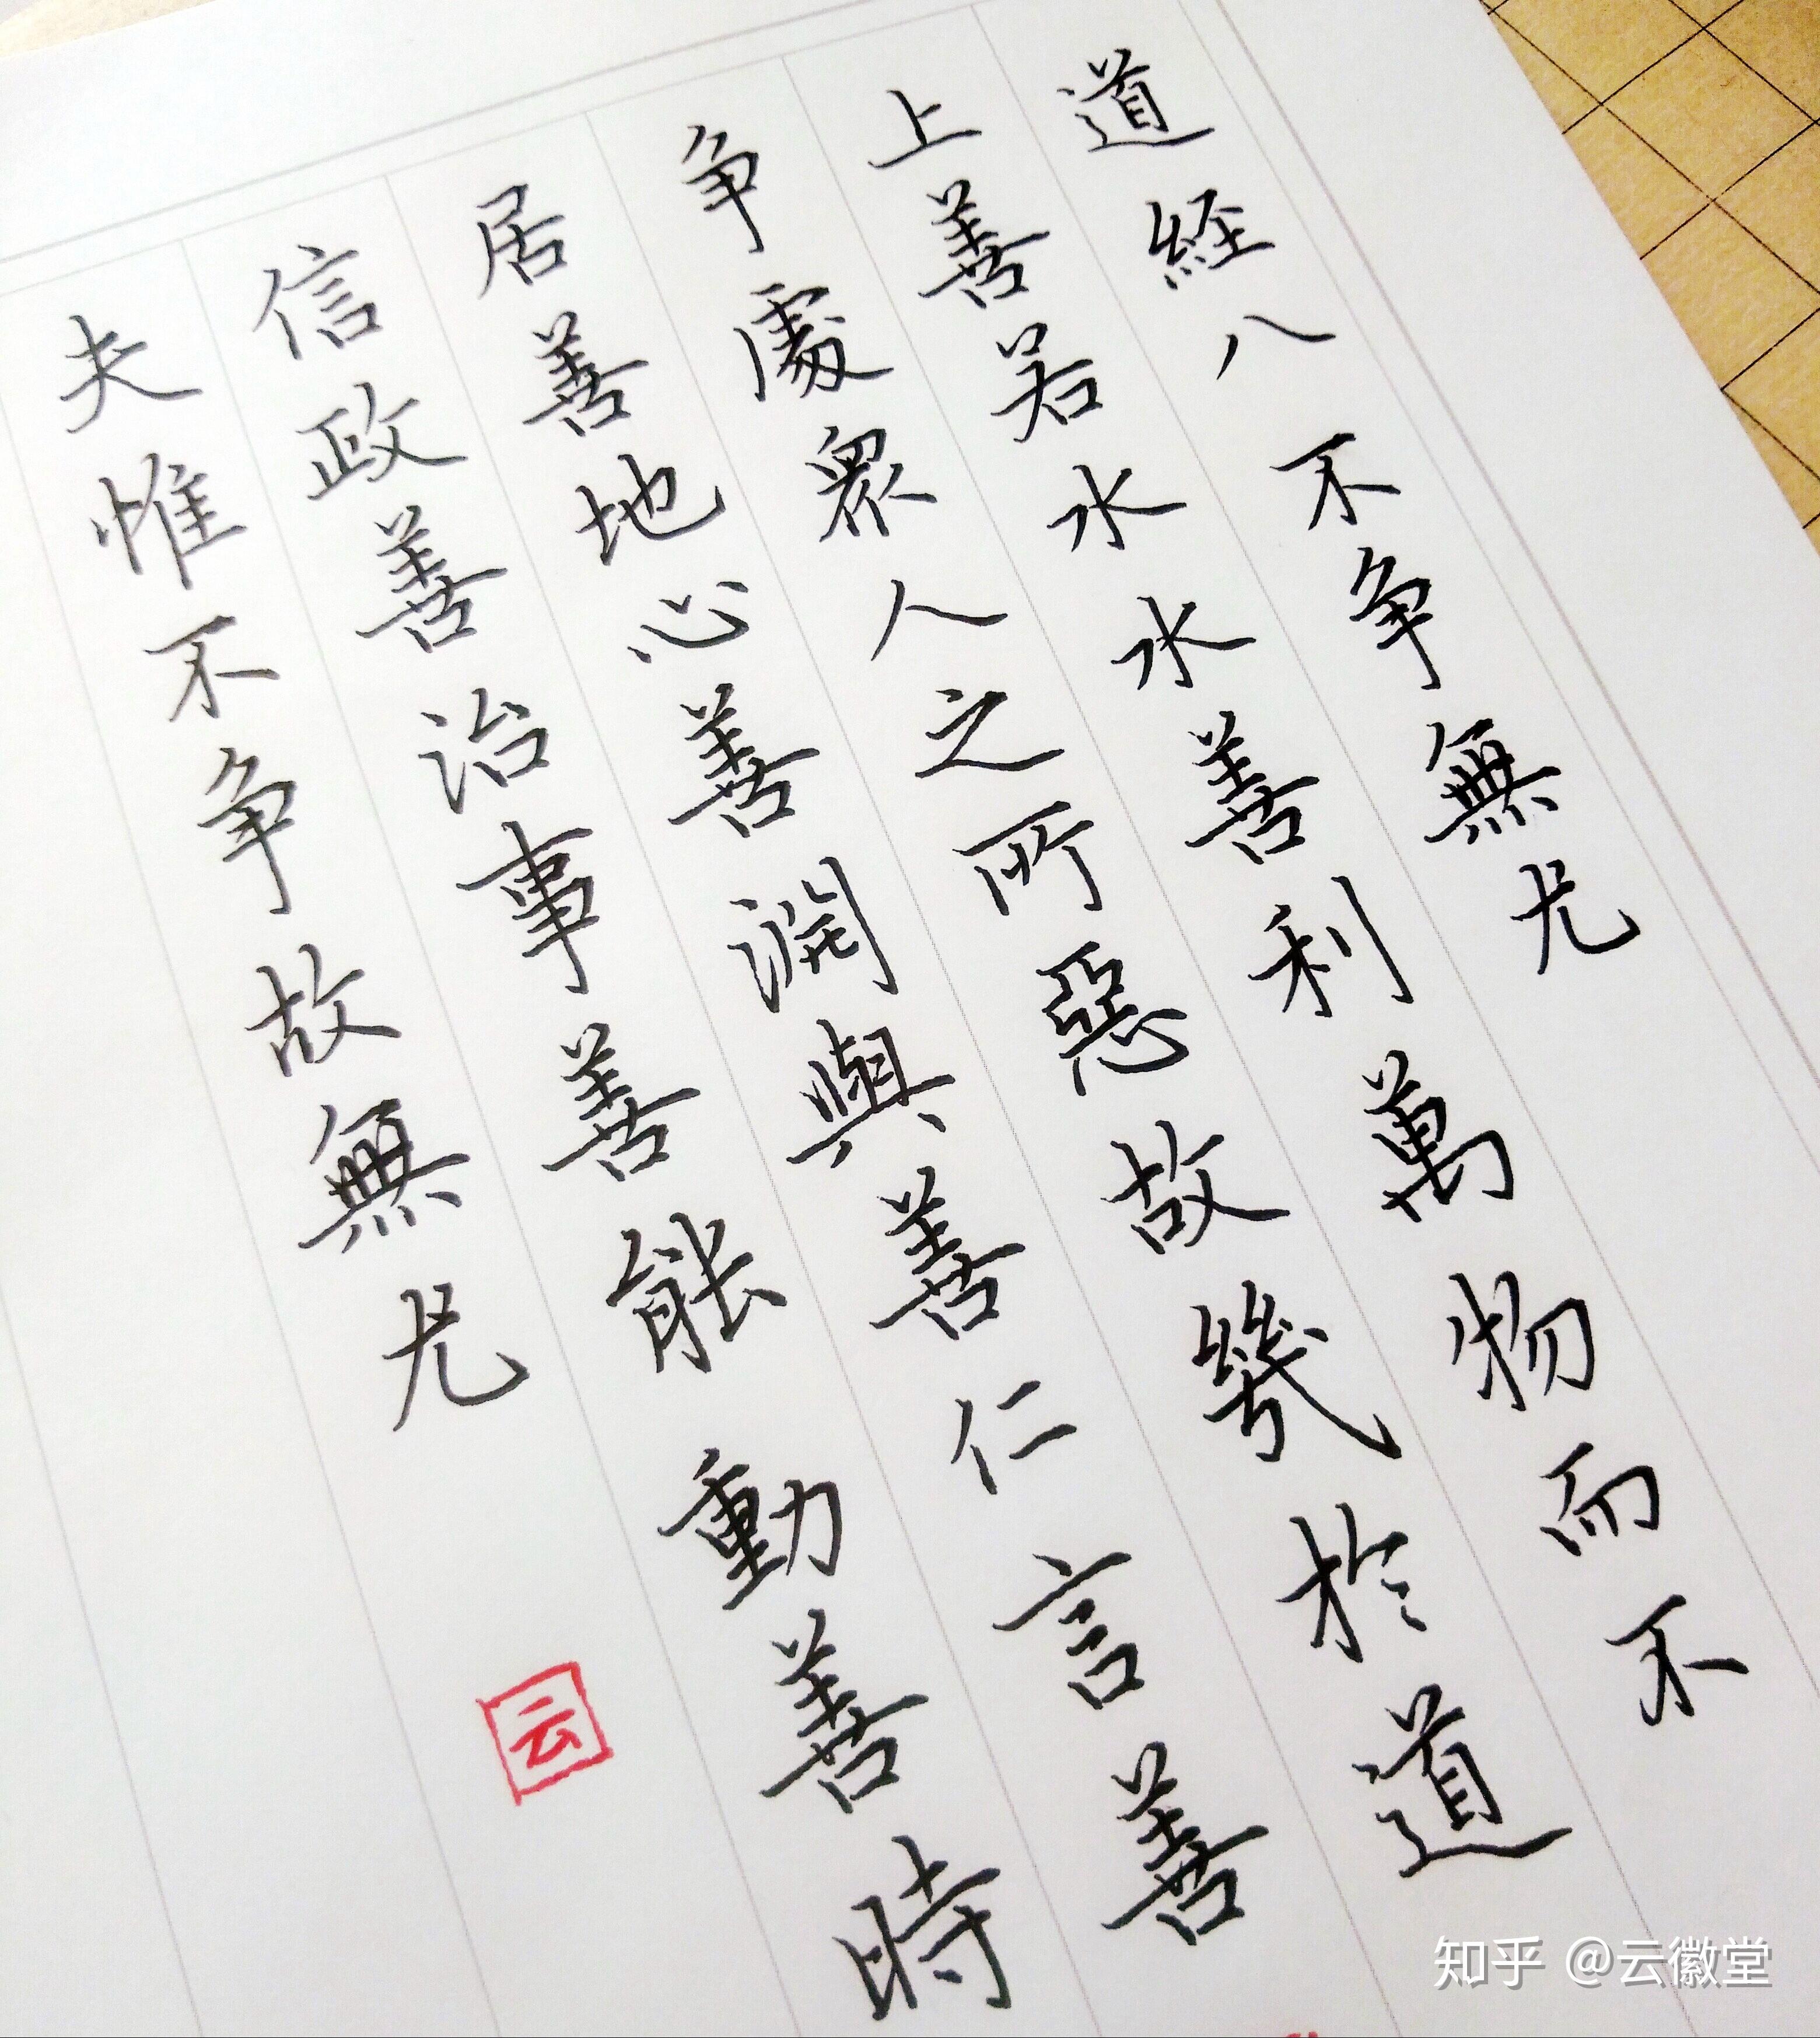 道経八 不争無尤
上善若水水善利萬物而不
争處眾人之所惡故幾於道
居善地心善淵與善仁言善
信政善治事善能動善時
夫惟不争故無尤
云
知乎 @云徽堂